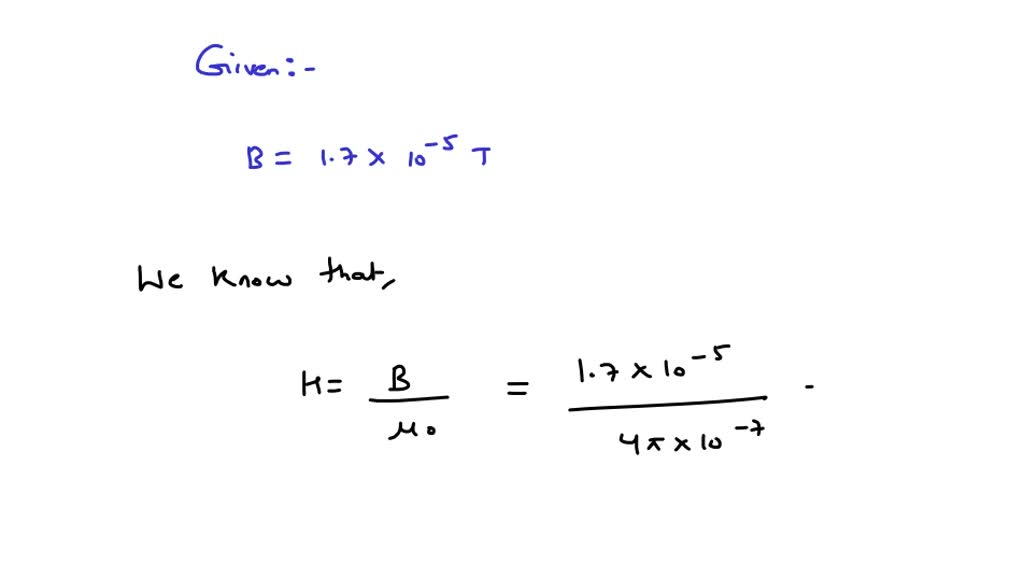 Given:-
B = 1.7 × 10⁻⁵ T
We know that,
H = B/μ₀ = 1.7 × 10⁻⁵ / 4π × 10⁻⁷ -